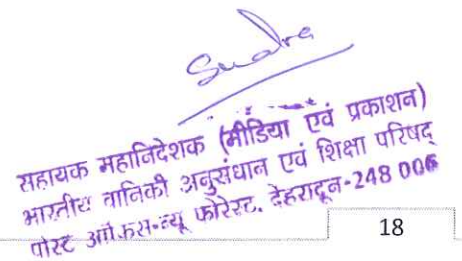 सहायक महानिदेशक (मीडिया एवं प्रकाशन)
भारतीय वानिकी अनुसंधान एवं शिक्षा परिषद्
पोस्ट ऑफिस-न्यू फोरेस्ट, देहरादून-248 006
18